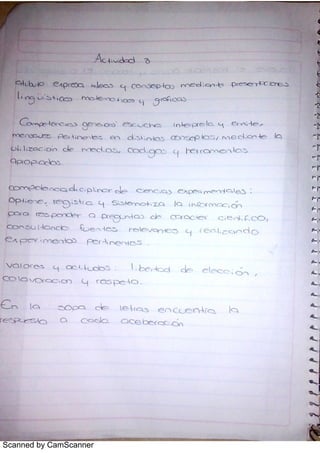 Actividad 8
atributo expresa ideas y conceptos mediante presentaciones
lingüisticas matematicas y graficas
Competencias genericas: escucha interpreta y emite
mensajes Pertinentes en distintos conseptos, mediante la
utilización de medios, codigos y herramientas
apropiados.
competencia diciplinar de ciencias experimentales:
Optiene, registra y sistematiza la información
para responder a preguntas de caracter cientifico,
consultando fuentes relevantes y realizando
experimentos Pertinentes.
valores y actitudes: libertad de elección,
colavoración y respeto.
En la sopa de letras encuentra la
respuesta a cada aceberación
Scanned by CamScanner